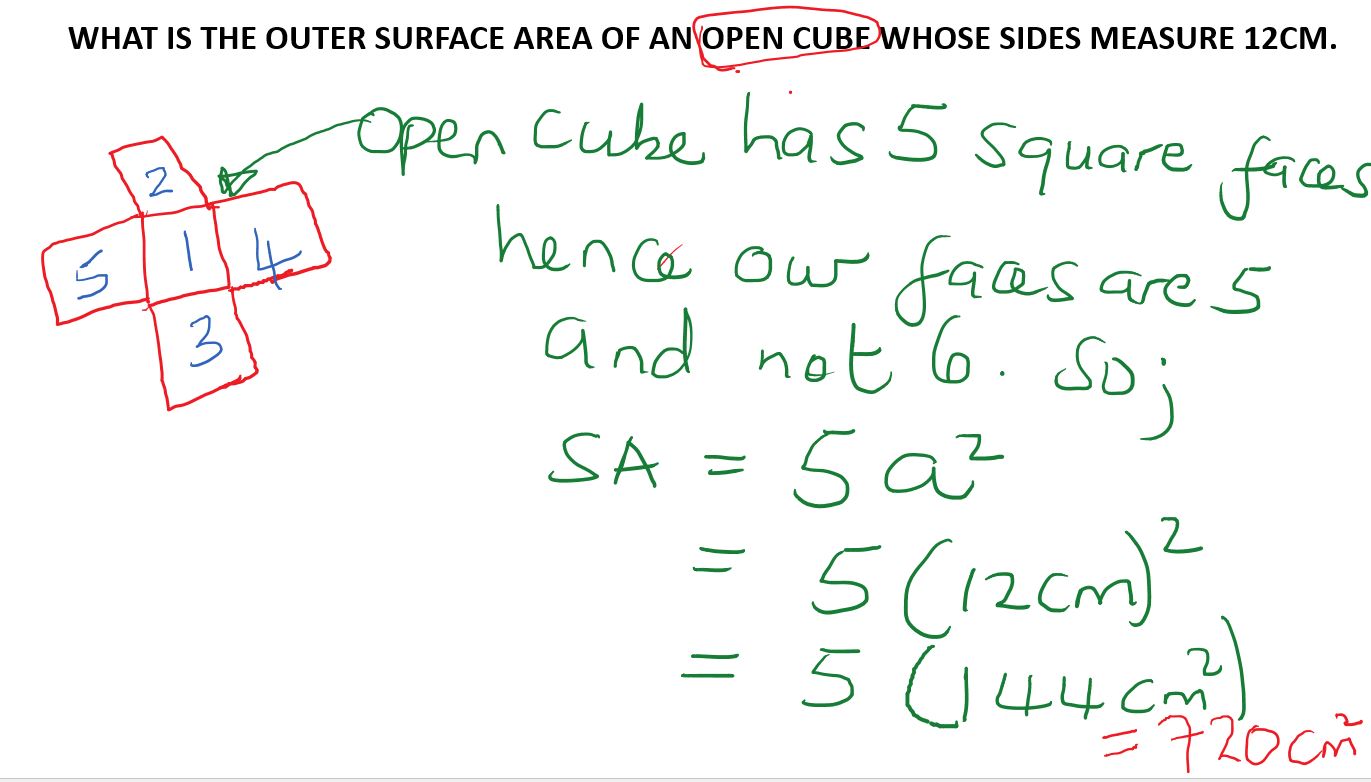 WHAT IS THE OUTER SURFACE AREA OF AN OPEN CUBE WHOSE SIDES MEASURE 12CM.
Open cube has 5 square faces
hence our faces are 5
and not 6. So;
SA = 5a²
= 5(12cm)²
= 5(144cm²)
= 720cm²
2
5 1 4
3